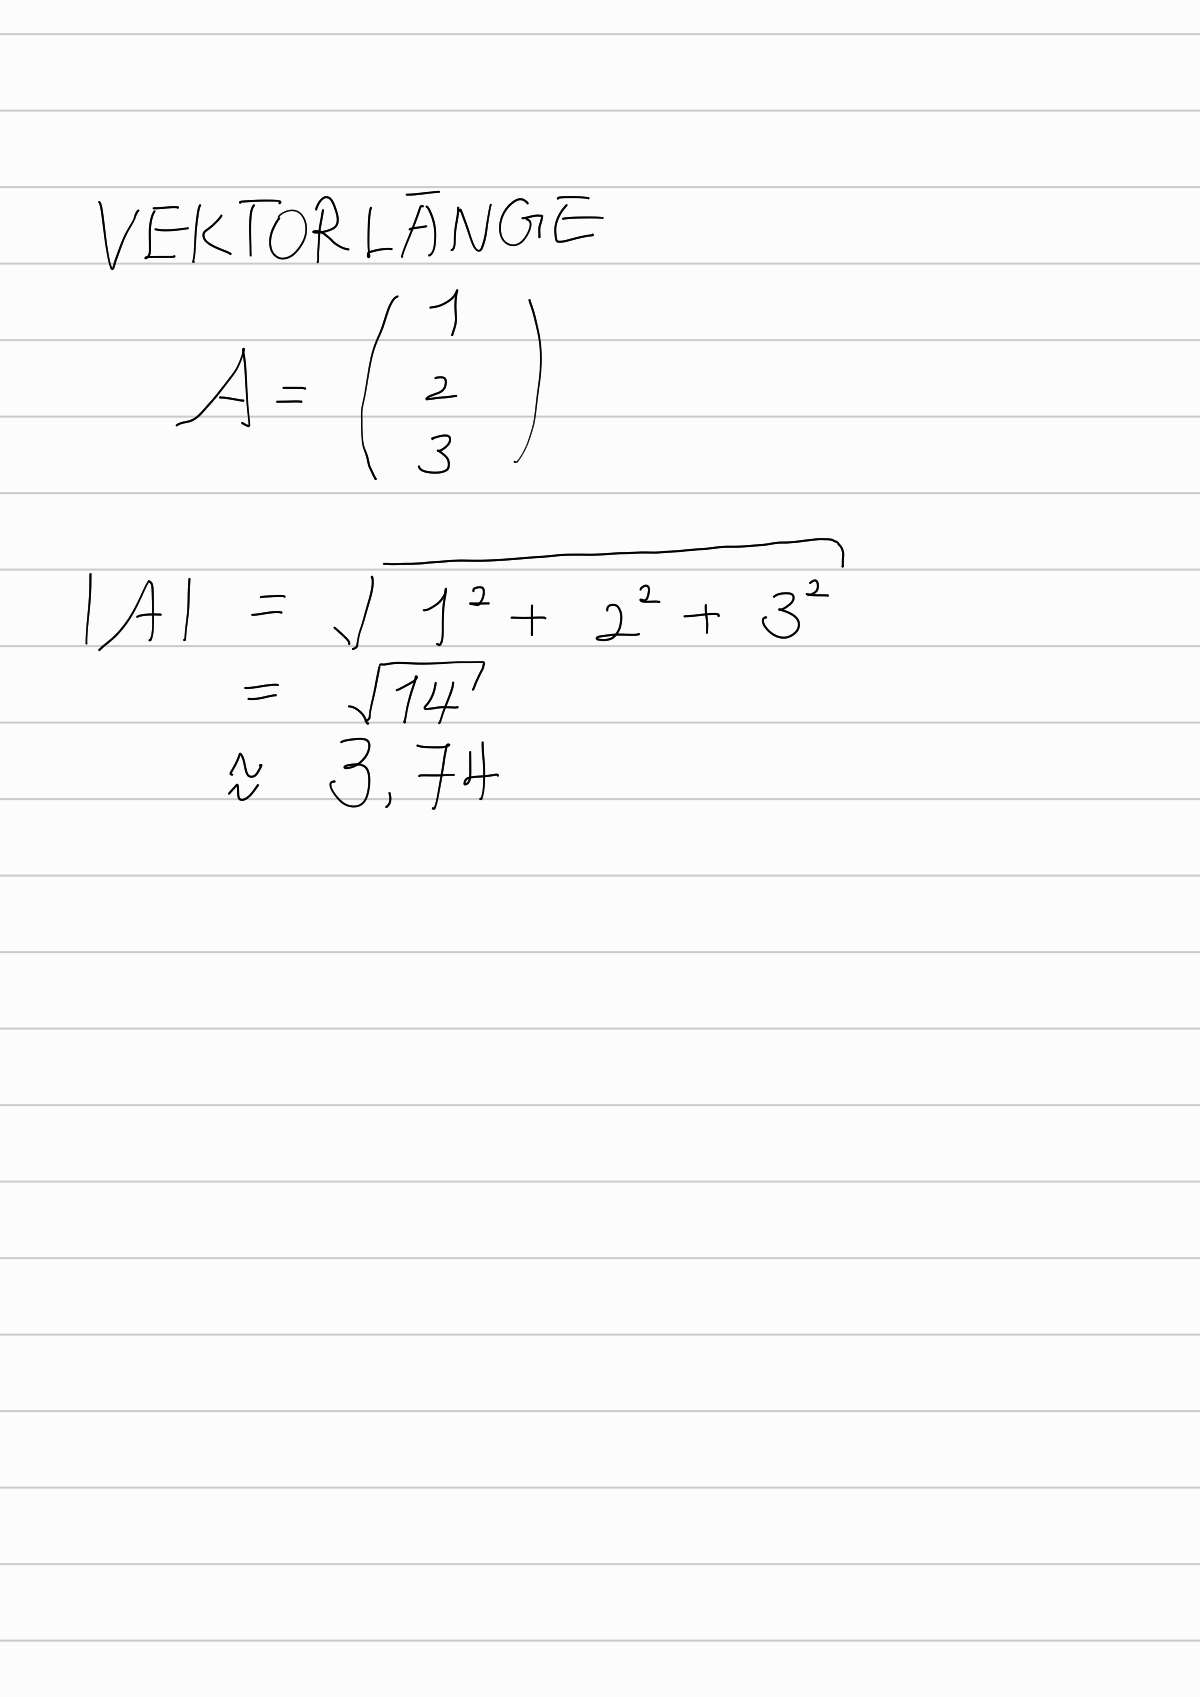 VEKTORLÄNGE
A = ( 1
2
3 )
|A| = √(1² + 2² + 3²)
= √14
≈ 3,74